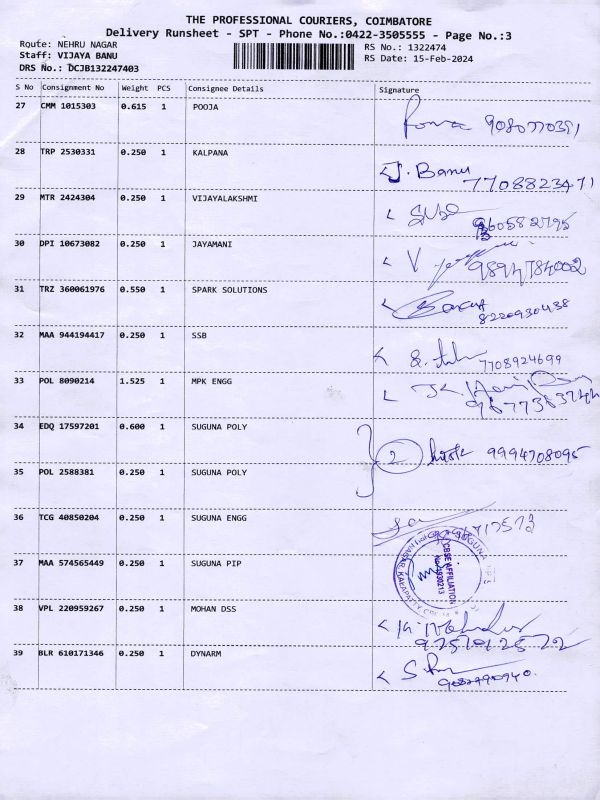 THE PROFESSIONAL COURIERS, COIMBATORE
Delivery Runsheet - SPT - Phone No.:0422-3505555 - Page No.:3
Route: NEHRU NAGAR
RS No.: 1322474
Staff: VIJAYA BANU
RS Date: 15-Feb-2024
DRS No.: DCJB132247403
S No Consignment No Weight PCS Consignee Details Signature
27 CMM 1015303 0.615 1 POOJA
28 TRP 2530331 0.250 1 KALPANA
J. Banu
7708823471
29 MTR 2424304 0.250 1 VIJAYALAKSHMI
30 DPI 10673082 0.250 1 JAYAMANI
V
9894784002
31 TRZ 360061976 0.550 1 SPARK SOLUTIONS
8220930438
32 MAA 944194417 0.250 1 SSB
7708924699
33 POL 8090214 1.525 1 MPK ENGG
34 EDQ 17597201 0.600 1 SUGUNA POLY
2 9994708095
35 POL 2588381 0.250 1 SUGUNA POLY
36 TCG 40850204 0.250 1 SUGUNA ENGG
37 MAA 574565449 0.250 1 SUGUNA PIP
CBSE AFFILIATION
No.1930213
38 VPL 220959267 0.250 1 MOHAN DSS
39 BLR 610171346 0.250 1 DYNARM